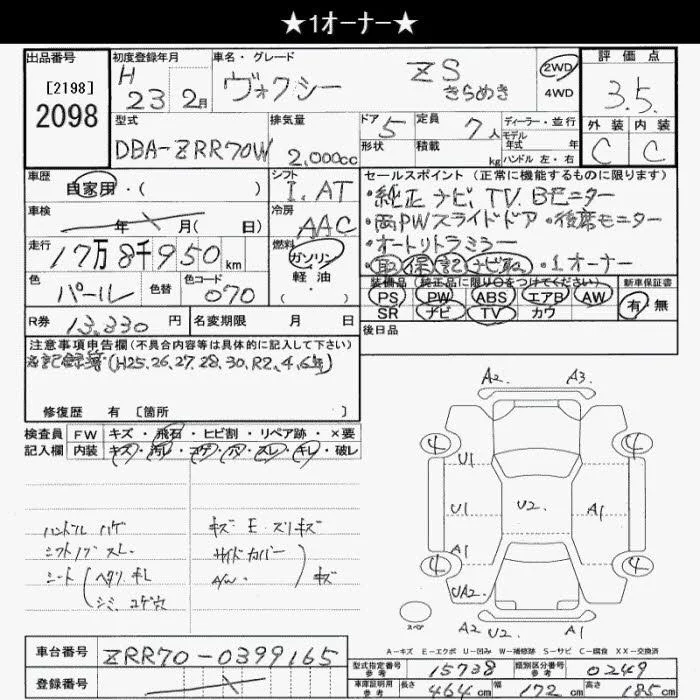 ★1オーナー★
出品番号 初度登録年月 車名・グレード 評価点
[2198] 2098
H 23 2月 ヴォクシー ZS きらめき 2WD 4WD 3.5
外装 内装
C C
型式 排気量 ドア 定員 ディーラー・並行
DBA-ZRR70W 2,000cc 5 7人 モデル年式 年
形状 積載 kg ハンドル 左・右
車歴 シフト セールスポイント(正常に機能するものに限ります)
自家用・( ) I.AT ・純正 ナビ, TV. Bモニター
車検 冷房 ・両PWスライドドア ・後席モニター
年 月( 日) AAC ・オートリトラミラー
走行 燃料 ・取 保 記 ナビ取 ・1オーナー
17万8千950km ガソリン 軽油 ( ・ )
色 色替 色コード 装備品(純正品に限り○をつけてください) 新車保証書
パール 070 PS PW ABS エアB AW 有・無
SR ナビ TV カワ
R券 13,330円 名変期限 月 日 後日品
注意事項申告欄(不具合内容等は具体的に記入して下さい)
記録簿(H25.26.27.28.30.R2.4.6年)
修復歴 有 [箇所 ]
検査員 FW キズ・飛石・ヒビ割・リペア跡・×要
記入欄 内装 キズ・汚レ・コゲ・穴・スレ・キレ・破レ
A2. A3.
4 4
U1
U1 U2. A1
A1
4 4
UA2
A2 U2 A1
スペア
ハンドル ハゲ
シフトノブ スレ.
シート ヘタリ キレ
シミ コゲ穴
キズ E スリキズ
サイドカバー
A/W. キズ
A-キズ E-エクボ U-凹み W-補修跡 S-サビ C-腐食 XX-交換済
車台番号 ZRR70-0399165
登録番号
型式指定番号 参考 15738 類別区分番号 参考 0249
車庫証明用 参考 長さ 464cm 幅 172cm 高さ 185cm